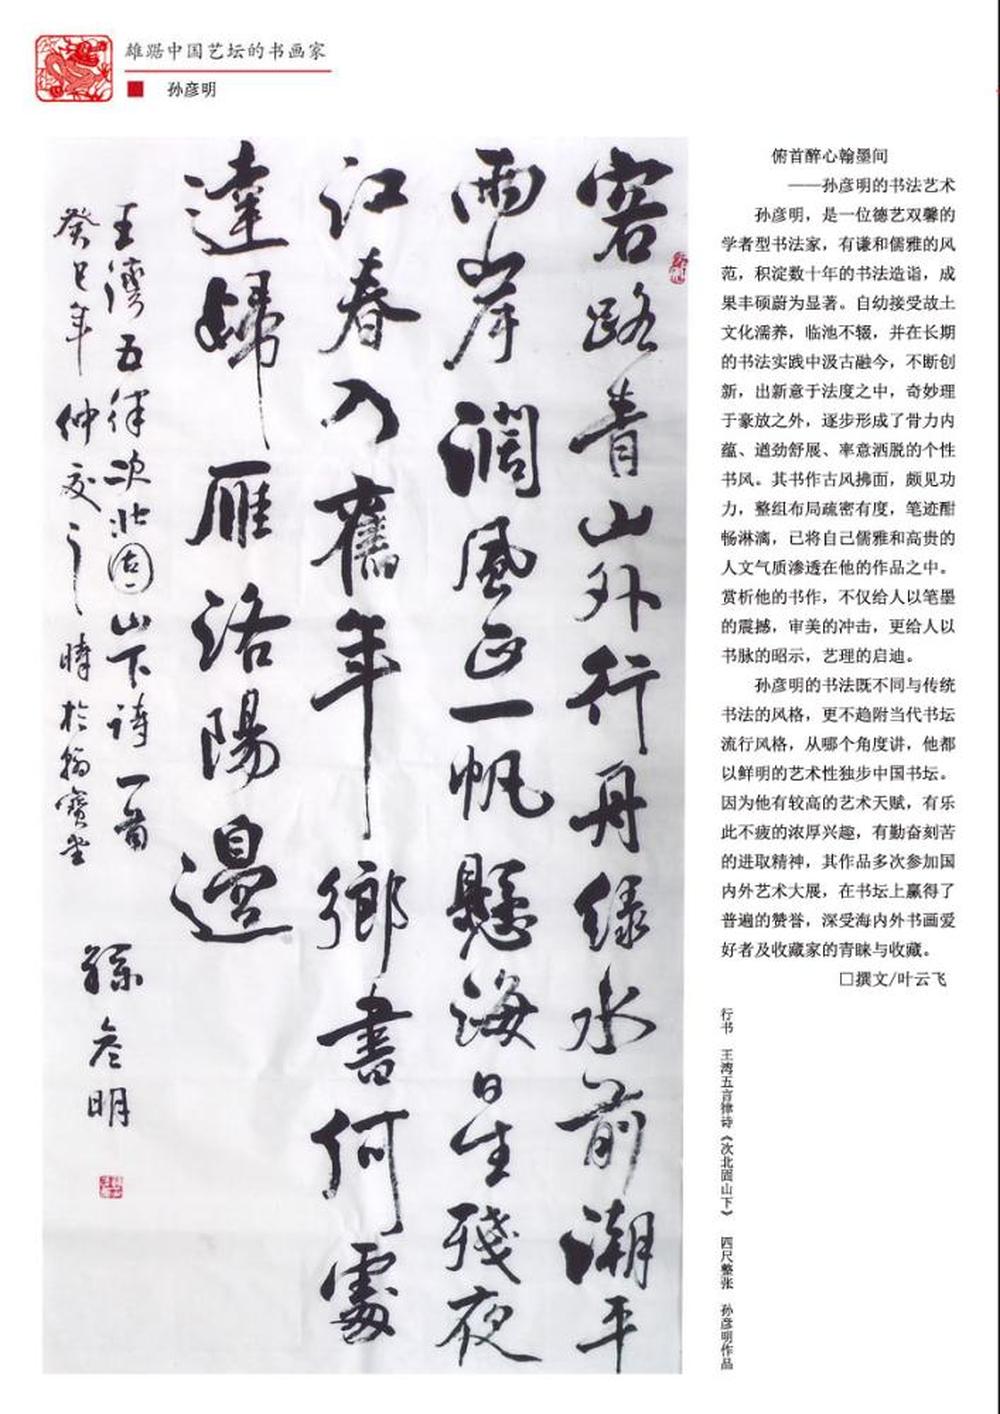 雄踞中国艺坛的书画家
孙彦明
客路青山外行舟綠水前潮平
兩岸濶風正一帆懸海日生殘夜
江春入舊年鄉書何處
達歸雁洛陽邊
王灣五律次北固山下詩一首
癸巳年仲夏之於翰寶堂
孫彦明
俯首醉心翰墨间
——孙彦明的书法艺术
孙彦明，是一位德艺双馨的
学者型书法家，有谦和儒雅的风
范，积淀数十年的书法造诣，成
果丰硕蔚为显著。自幼接受故土
文化濡养，临池不辍，并在长期
的书法实践中汲古融今，不断创
新，出新意于法度之中，奇妙理
于豪放之外，逐步形成了骨力内
蕴、遒劲舒展、率意洒脱的个性
书风。其书作古风拂面，颇见功
力，整组布局疏密有度，笔迹酣
畅淋漓，已将自己儒雅和高贵的
人文气质渗透在他的作品之中。
赏析他的书作，不仅给人以笔墨
的震撼，审美的冲击，更给人以
书脉的昭示，艺理的启迪。
孙彦明的书法既不同与传统
书法的风格，更不趋附当代书坛
流行风格，从哪个角度讲，他都
以鲜明的艺术性独步中国书坛。
因为他有较高的艺术天赋，有乐
此不疲的浓厚兴趣，有勤奋刻苦
的进取精神，其作品多次参加国
内外艺术大展，在书坛上赢得了
普遍的赞誉，深受海内外书画爱
好者及收藏家的青睐与收藏。
□撰文/叶云飞
行书 王湾五言律诗《次北固山下》 四尺整张 孙彦明作品